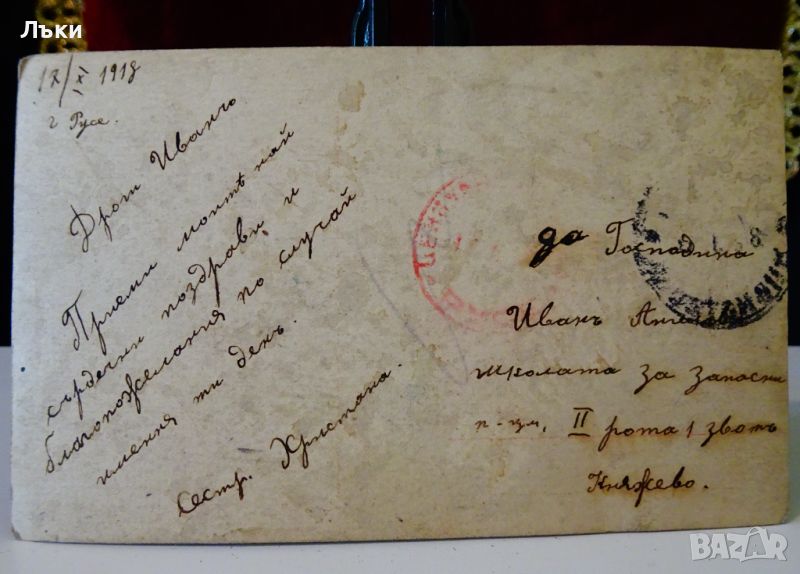 Лъки
17/XI 1918
г Русе.
Драги Иванчо
Приеми моитѣ най
сърдечни поздрави и
благопожелания по случай
имения ти день.
Сестр. Христана.
до Господина
Иванъ
школата за запасни
п-ци, II рота 1 зводъ
Княжево.
BAZAR